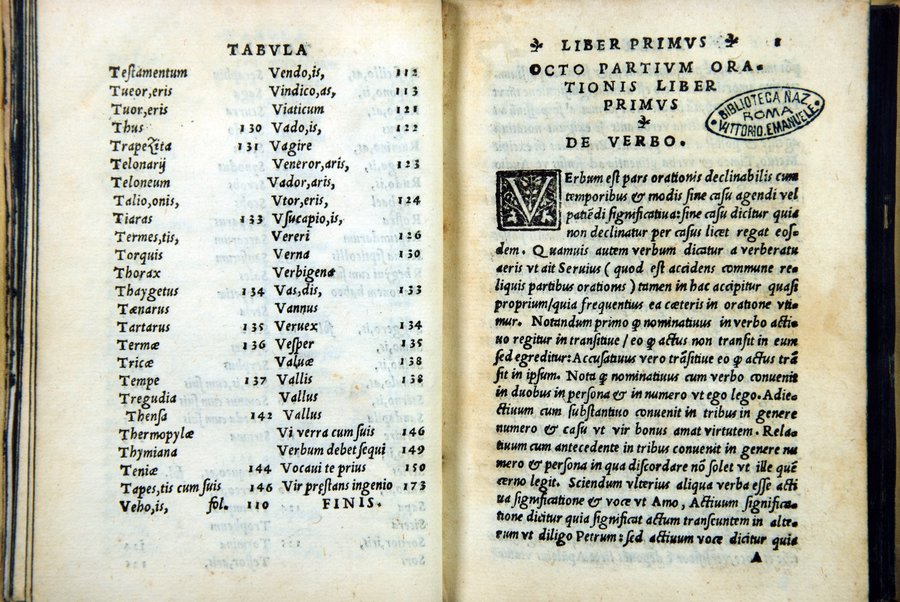 TABVLA
Testamentum
Tueor,eris
Tuor,eris
Thus 130
Trapezita 131
Telonarij
Teloneum
Talio,onis,
Tiaras 133
Termes,tis,
Torquis
Thorax
Thaygetus 134
Tænarus
Tartarus 135
Termæ 136
Tricæ
Tempe 137
Tregudia
Thensa 142
Thermopylæ
Thymiana
Teniæ 144
Tapes,tis cum suis 146
Veho,is, fol. 110
Vendo,is, 112
Vindico,as, 113
Viaticum 121
Vado,is, 122
Vagire
Veneror,aris, 123
Vador,aris,
Vtor,eris, 124
Vsucapio,is,
Vereri 126
Verna 130
Verbigena
Vas,dis, 133
Vannus
Veruex 134
Vesper 135
Valuæ 138
Vallis 138
Vallus
Vallus
Vi verra cum suis 146
Verbum debet sequi 149
Vocaui te prius 150
Vir præstans ingenio 173
FINIS.
LIBER PRIMVS 1
OCTO PARTIVM ORA-
TIONIS LIBER
PRIMVS
DE VERBO.
BIBLIOTECA NAZ.
ROMA
VITTORIO.EMANUELE
VErbum est pars orationis declinabilis cum
temporibus & modis sine casu agendi vel
patiẽdi significatiua: sine casu dicitur quia
non declinatur per casus licet regat eos-
dem. Quamuis autem verbum dicatur a verberatu
aeris vt ait Seruius ( quod est accidens commune re-
liquis partibus orationis ) tamen in hac accipitur quasi
proprium/quia frequentius ea cæteris in oratione vti-
mur. Notandum primo ꝙ nominatiuus in verbo acti-
uo regitur in transitiue / eo ꝙ actus non transit in eum
sed egreditur: Accusatiuus vero trãsitiue eo ꝙ actus trã
sit in ipsum. Nota ꝙ nominatiuus cum verbo conuenit
in duobus in persona & in numero vt ego lego. Adie-
ctiuum cum substantiuo conuenit in tribus in genere
numero & casu vt vir bonus amat virtutem. Rela-
tiuum cum antecedente in tribus conuenit in genere nu
mero & persona in qua discordare nõ solet vt ille quẽ
cerno legit. Sciendum vlterius aliqua verba esse acti
ua significatione & voce vt Amo, Actiuum significa-
tione dicitur quia significat actum transeuntem in alte-
rum vt diligo Petrum: sed actiuum voce dicitur quia
A